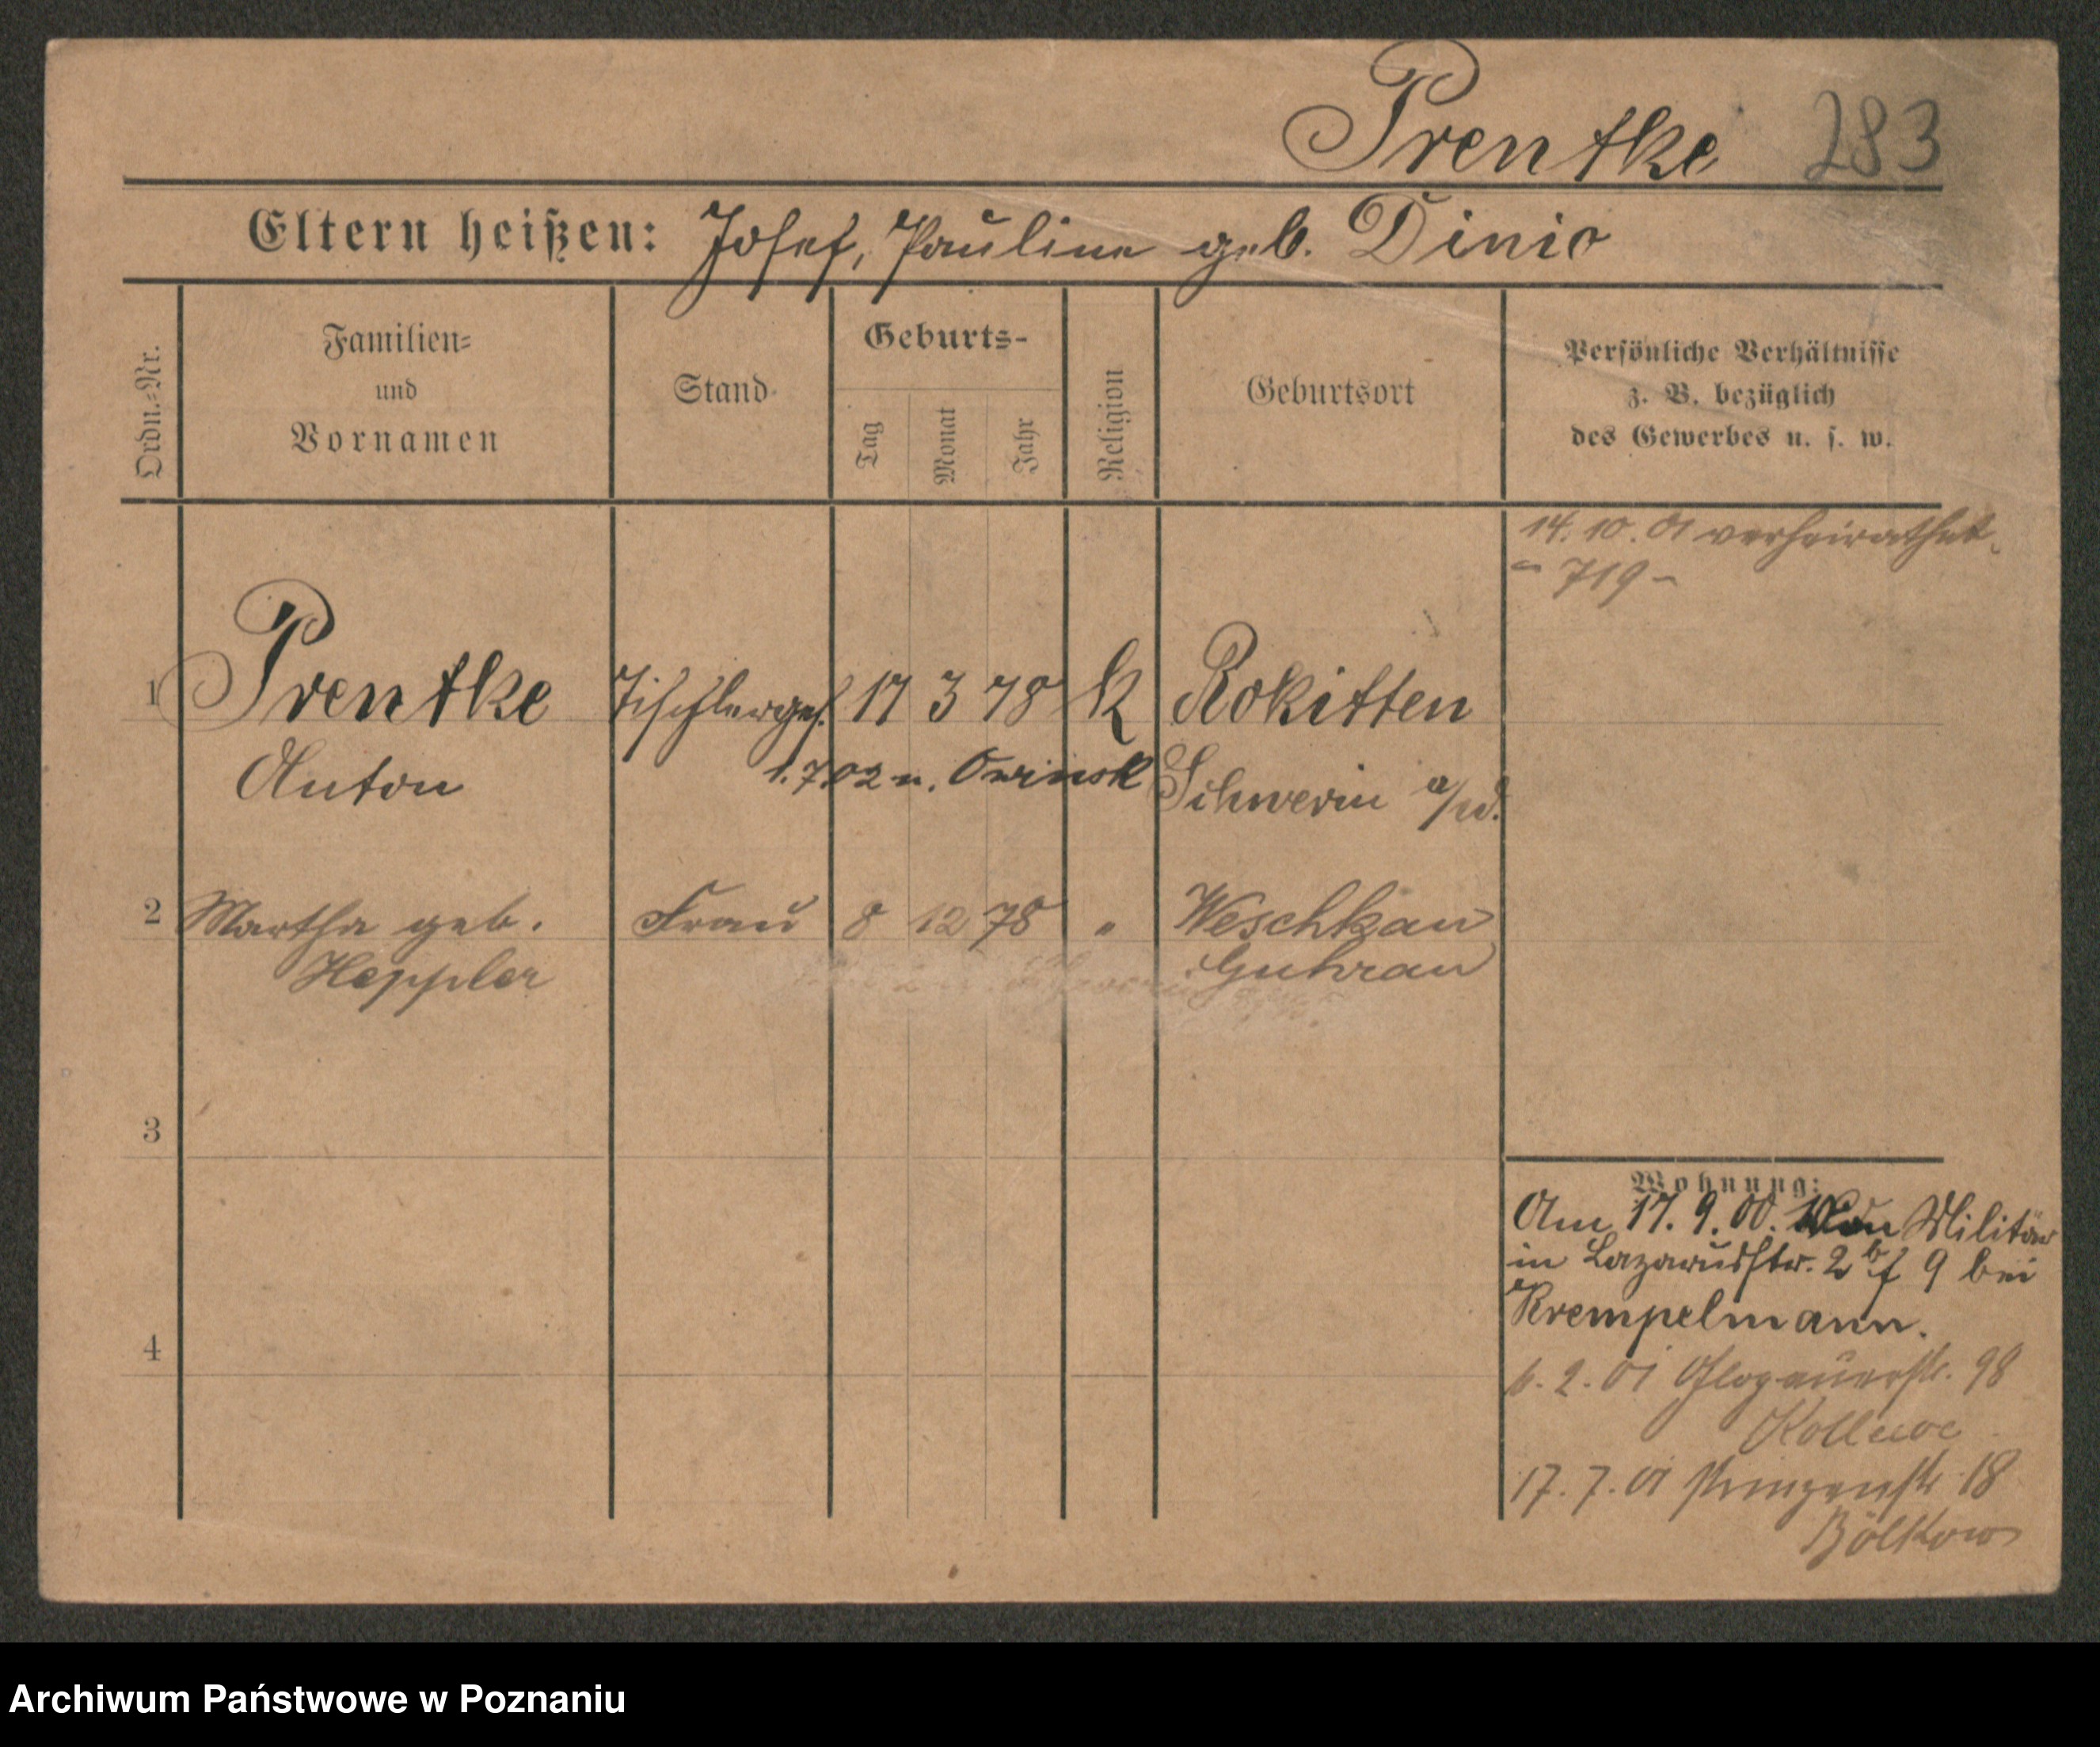 Prentke 283
Eltern heißen: Josef, Pauline geb. Dinio
Ordn.-Nr.
Familien-
und
Vornamen
Stand
Geburts-
Tag
Monat
Jahr
Religion
Geburtsort
Persönliche Verhältnisse
z. B. bezüglich
des Gewerbes u. s. w.
14. 10. 01 verheirathet.
- 719 -
1 Prentke Tischlerges. 17 3 78 K Rokitten
Anton 1.7.02 n. Owinsk Schwerin a/W.
2 Martha geb. Frau 8 12 78 " Weschkau
Heppler Guhrau
3
4
Wohnung:
Am 17. 9. 00. Von Militär
in Lazarusstr. 2 b/f 9 bei
Krempelmann.
6. 2. 01 Glogauerstr. 98
17. 7. 01 Prinzenstr. 18
Bölkow
Archiwum Państwowe w Poznaniu